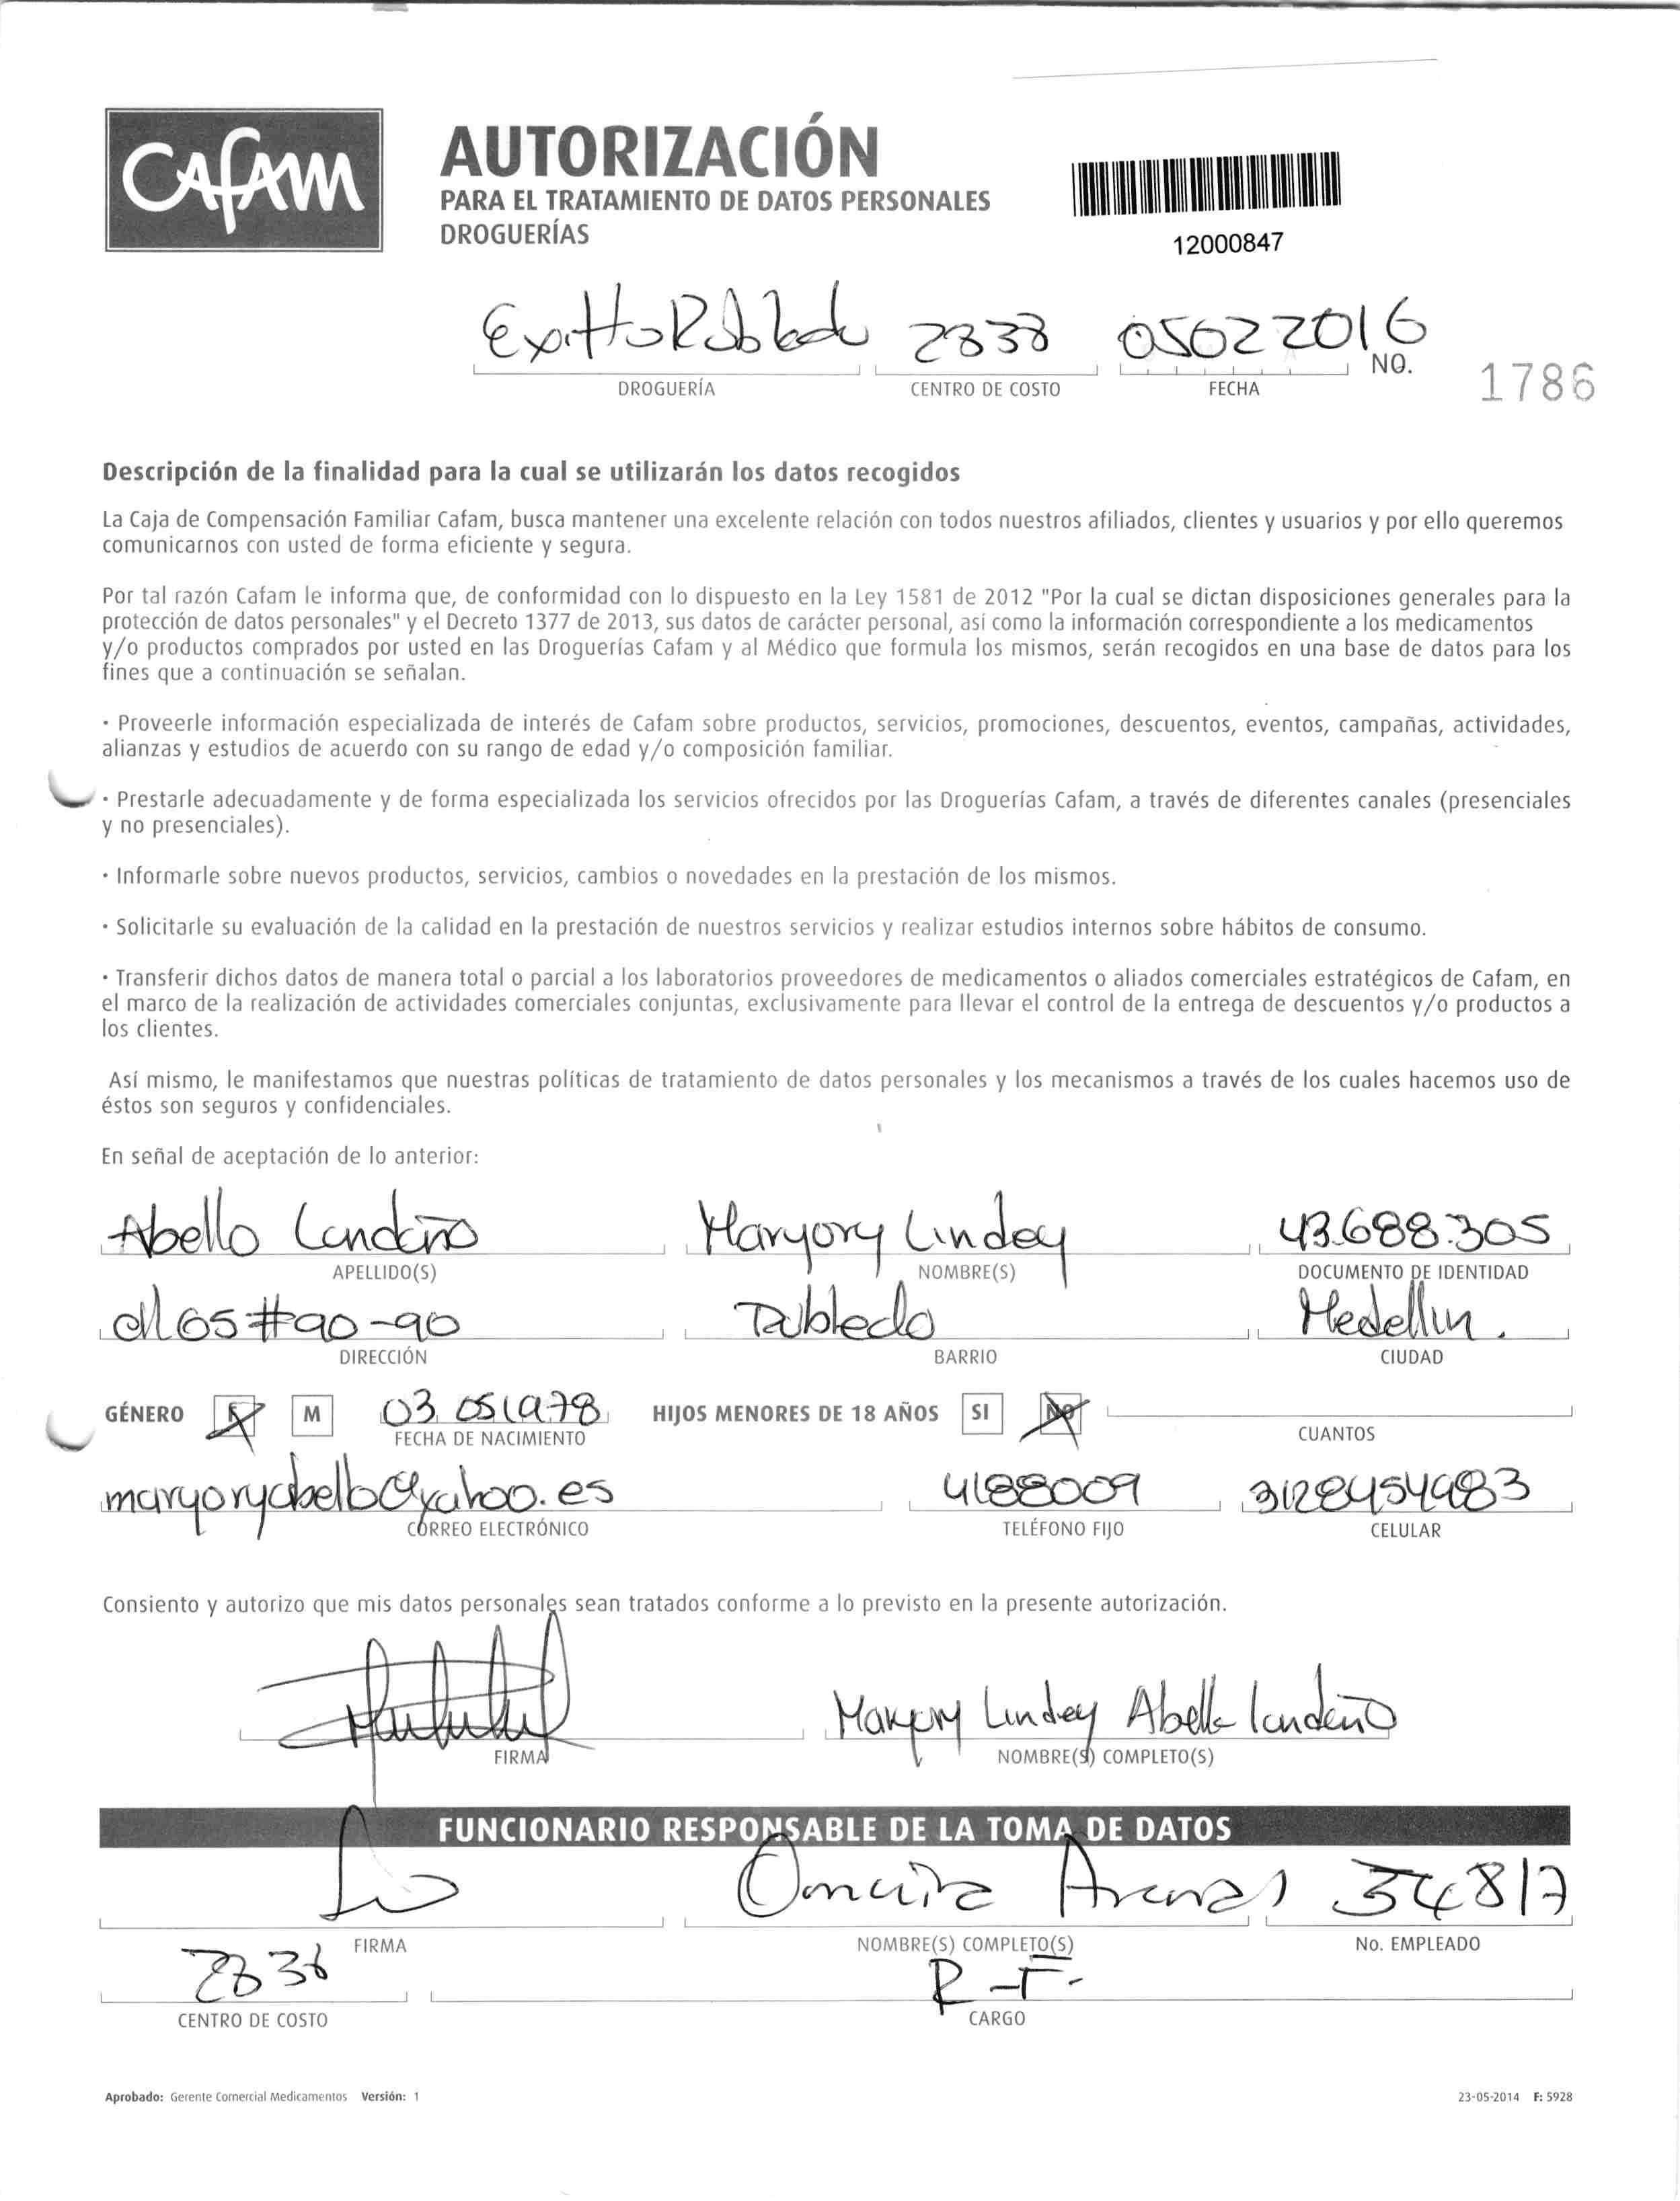 CAFAM
AUTORIZACIÓN
PARA EL TRATAMIENTO DE DATOS PERSONALES
DROGUERÍAS
12000847
Exitto Robledo 2838 05022016
DROGUERÍA CENTRO DE COSTO FECHA NO. 1786
Descripción de la finalidad para la cual se utilizarán los datos recogidos
La Caja de Compensación Familiar Cafam, busca mantener una excelente relación con todos nuestros afiliados, clientes y usuarios y por ello queremos
comunicarnos con usted de forma eficiente y segura.
Por tal razón Cafam le informa que, de conformidad con lo dispuesto en la Ley 1581 de 2012 "Por la cual se dictan disposiciones generales para la
protección de datos personales" y el Decreto 1377 de 2013, sus datos de carácter personal, así como la información correspondiente a los medicamentos
y/o productos comprados por usted en las Droguerías Cafam y al Médico que formula los mismos, serán recogidos en una base de datos para los
fines que a continuación se señalan.
· Proveerle información especializada de interés de Cafam sobre productos, servicios, promociones, descuentos, eventos, campañas, actividades,
alianzas y estudios de acuerdo con su rango de edad y/o composición familiar.
· Prestarle adecuadamente y de forma especializada los servicios ofrecidos por las Droguerías Cafam, a través de diferentes canales (presenciales
y no presenciales).
· Informarle sobre nuevos productos, servicios, cambios o novedades en la prestación de los mismos.
· Solicitarle su evaluación de la calidad en la prestación de nuestros servicios y realizar estudios internos sobre hábitos de consumo.
· Transferir dichos datos de manera total o parcial a los laboratorios proveedores de medicamentos o aliados comerciales estratégicos de Cafam, en
el marco de la realización de actividades comerciales conjuntas, exclusivamente para llevar el control de la entrega de descuentos y/o productos a
los clientes.
Así mismo, le manifestamos que nuestras políticas de tratamiento de datos personales y los mecanismos a través de los cuales hacemos uso de
éstos son seguros y confidenciales.
En señal de aceptación de lo anterior:
Abello Londoño Maryory Lindey 43.688.305
APELLIDO(S) NOMBRE(S) DOCUMENTO DE IDENTIDAD
cll 65 # 90-90 Robledo Medellin.
DIRECCIÓN BARRIO CIUDAD
GÉNERO F M 03 05 1978 HIJOS MENORES DE 18 AÑOS SI NO
FECHA DE NACIMIENTO CUANTOS
maryoryabello@yahoo.es 4188009 3128454983
CORREO ELECTRÓNICO TELÉFONO FIJO CELULAR
Consiento y autorizo que mis datos personales sean tratados conforme a lo previsto en la presente autorización.
Maryory Lindey Abello Londoño
FIRMA NOMBRE(S) COMPLETO(S)
FUNCIONARIO RESPONSABLE DE LA TOMA DE DATOS
Omaira Arenas 34817
FIRMA NOMBRE(S) COMPLETO(S) No. EMPLEADO
2838 R-F.
CENTRO DE COSTO CARGO
Aprobado: Gerente Comercial Medicamentos Versión: 1 23-05-2014 F: 5928